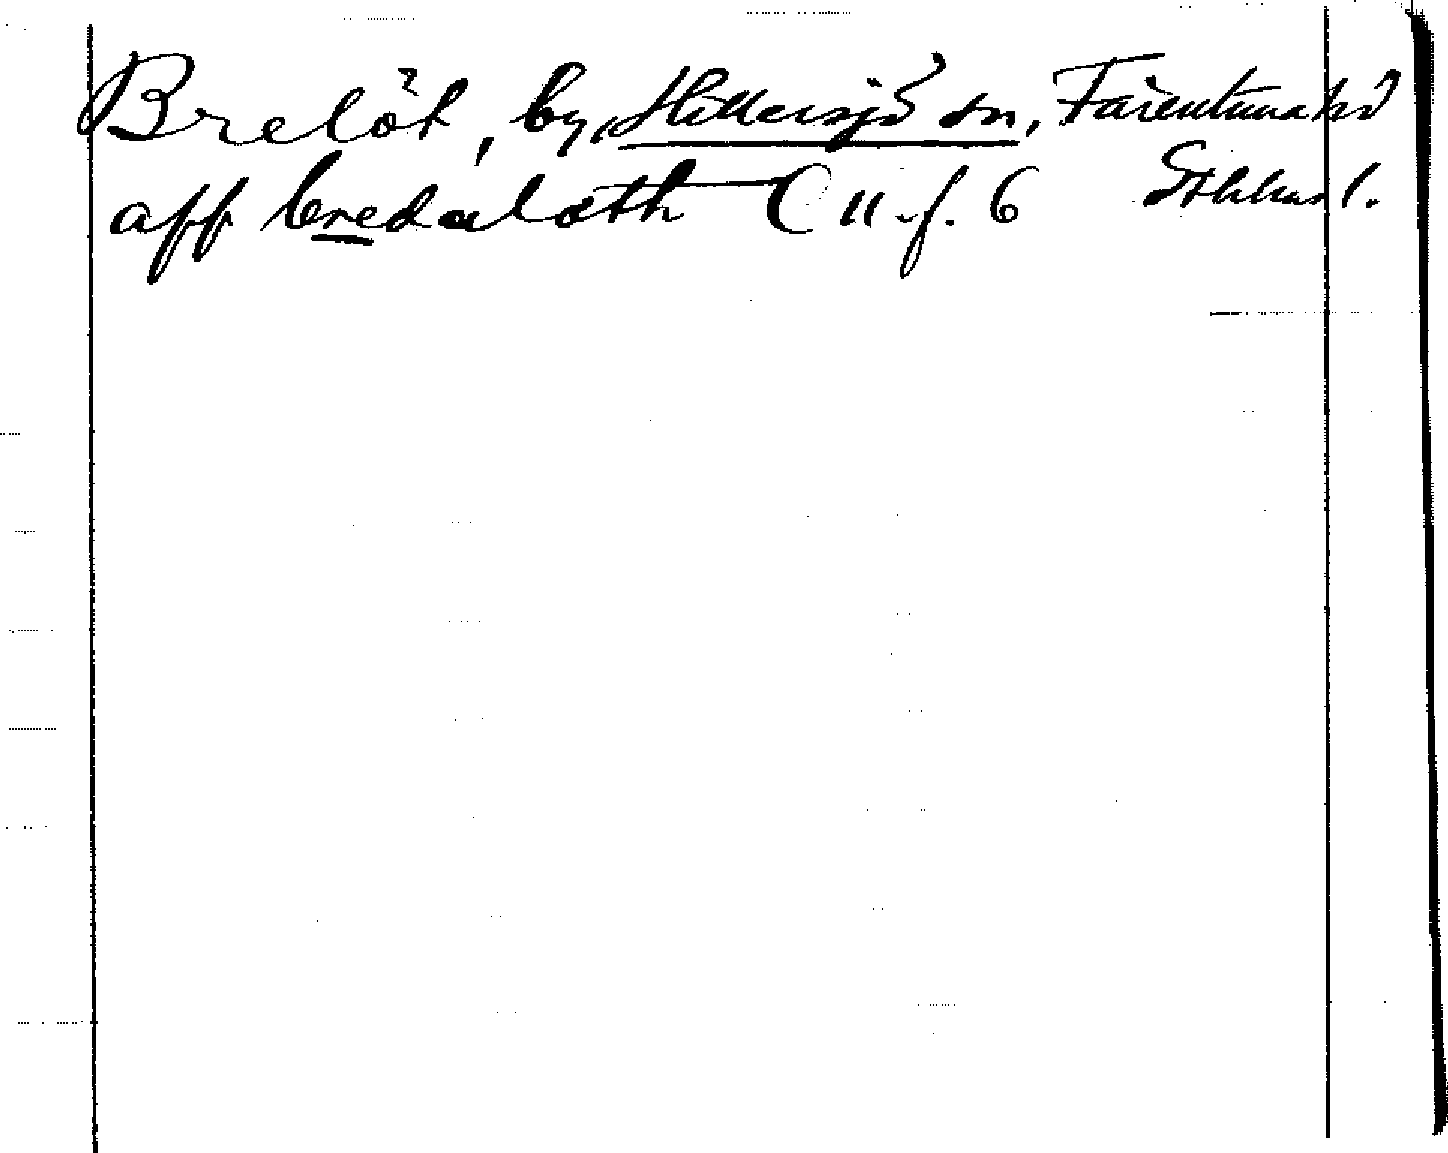 Brelöt, by, Hillersjö sn, Färentuna hd
aff bredaløth C 11 f. 6 Sthlms l.